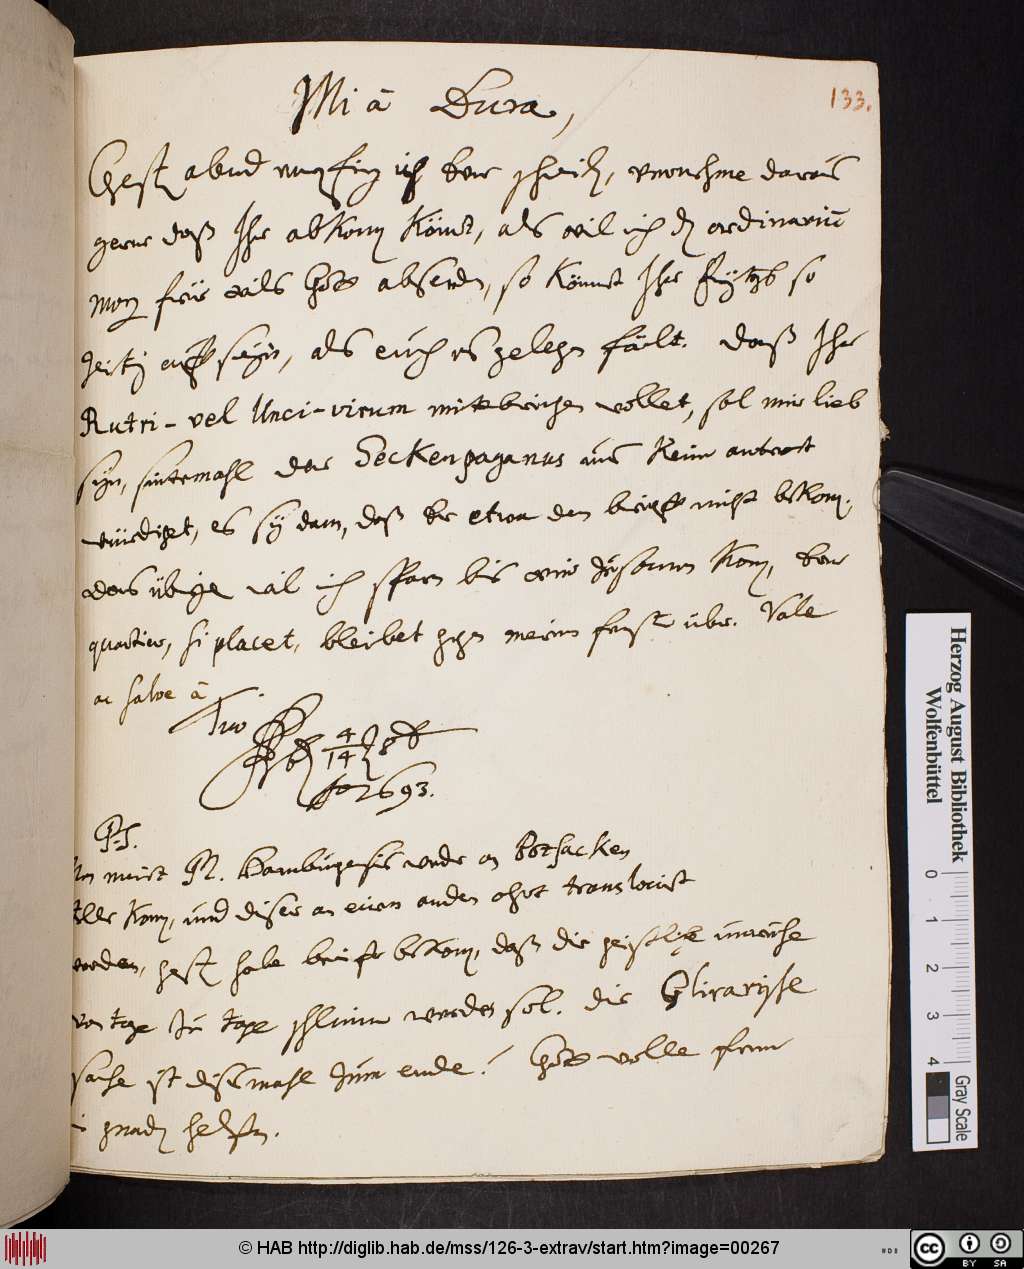 Mi ā Dura,
133.
Gest abend empfing ich Ewr schreib, vernehme daraus
gerne daß Ihr abkom könt, als wil ich d ordinarium
morg früe wils Gott absenden, so könnet Ihr so
zeitig auff seyn, als euch es gelegen fält. daß Ihr
Rutri-vel Unci-virum mittbringen wollet, sol mir lieb
seyn, sintemahl der Seckenpaganus uns keiner antwort
würdiget, es sey dann, daß Er etwa den brieff nicht bekom,
das übige wil ich sparen bis wir zusamen kom, Ewr
quartier, si placet, bleibet gegen meinem über. Vale
ac salve ā
Tuo
4
14
8b
1693.
P.S.
meint Hamburgensis werde an Botsacken
stelle kom, und dieser an einen anden ohrt translociret
werden, gest habe briefe bekom, daß die geistliche unruhe
von tage zu tage schlimmer werden sol. die
sache ist diesmahl zum ende! Gott wolle ferner
in gnad helfen.
Herzog August Bibliothek
Wolfenbüttel
0 1 2 3 4
Gray Scale
© HAB http://diglib.hab.de/mss/126-3-extrav/start.htm?image=00267
cc BY SA